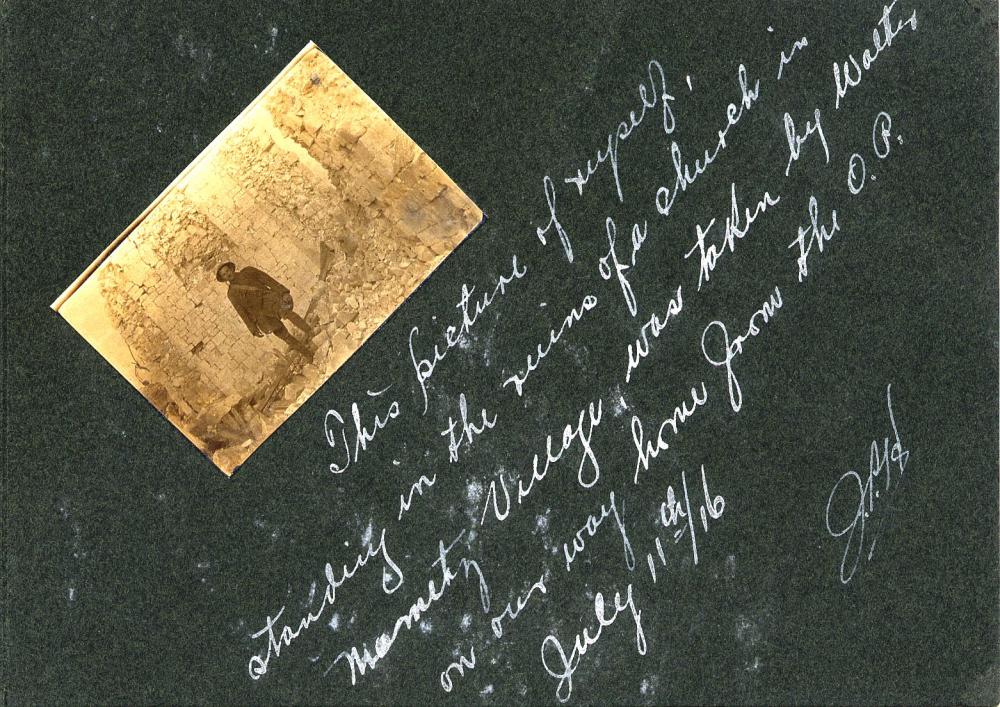 This picture of myself,
standing in the ruins of a church in
Mametz Village, was taken by Walter
on our way home from the O.P.
July 11th/16